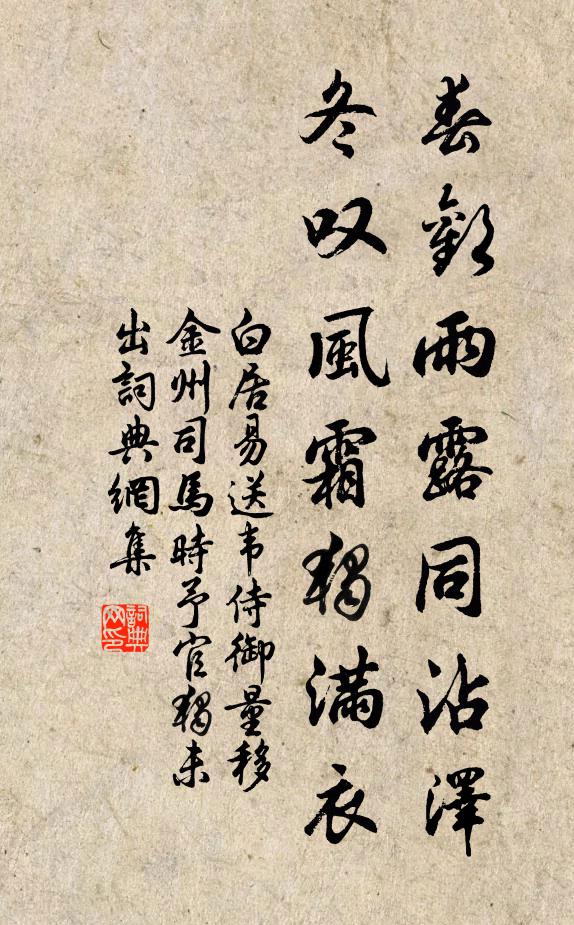 春歡雨露同沾澤
冬叹風霜獨滿衣
白居易送韦侍御量移
金州司馬時予官獨未
出詞典網集
詞典
网印